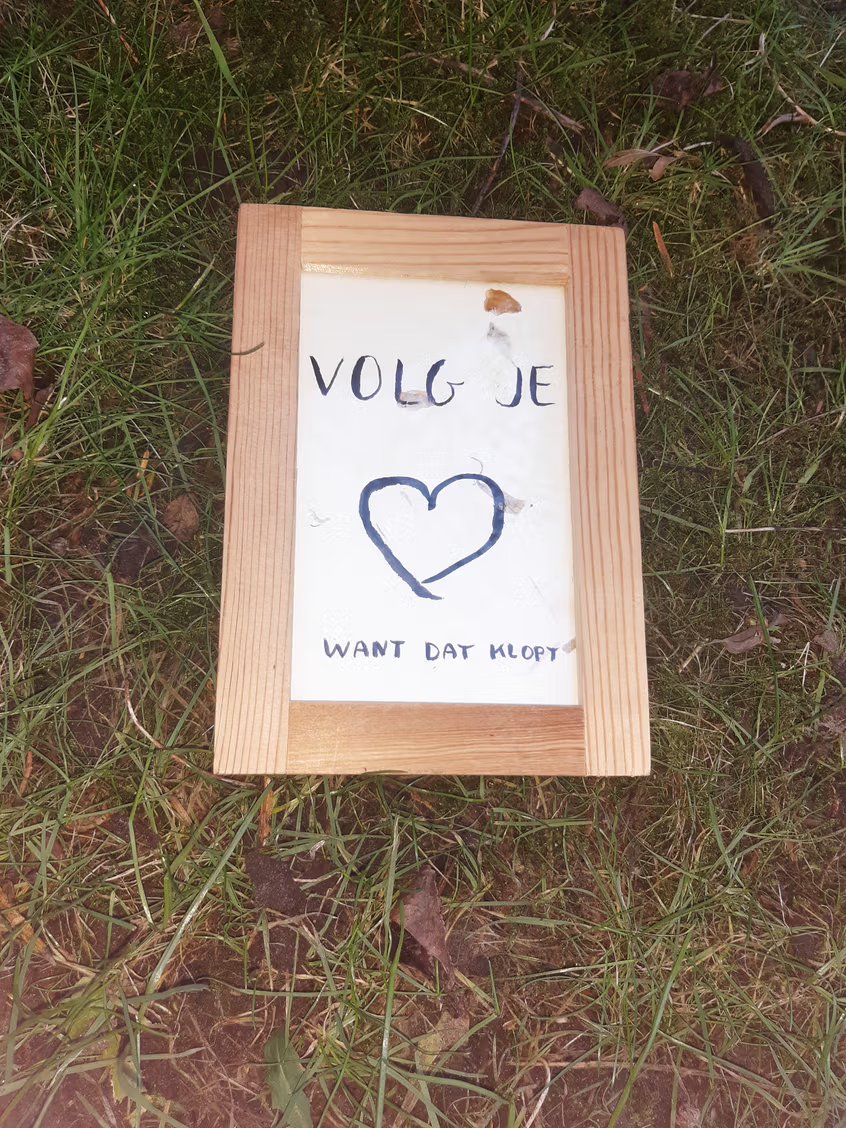 VOLG JE
WANT DAT KLOPT